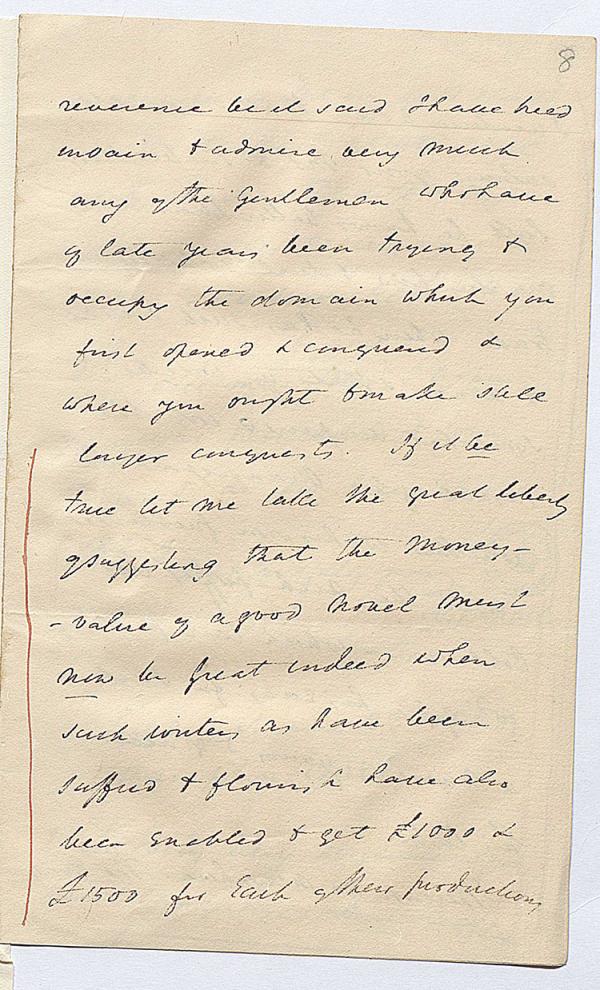 8
reverence be it said I have tried
in vain to admire very much
any of the Gentlemen who have
of late years been trying to
occupy the domain which you
first opened & conquered &
where you ought to make still
larger conquests. If it be
true let me take the great liberty
of suggesting that the money-
-value of a good Novel must
now be great indeed when
such writers as have been
suffered to flourish have also
been enabled to get £1000 &
£1500 for Each of their productions